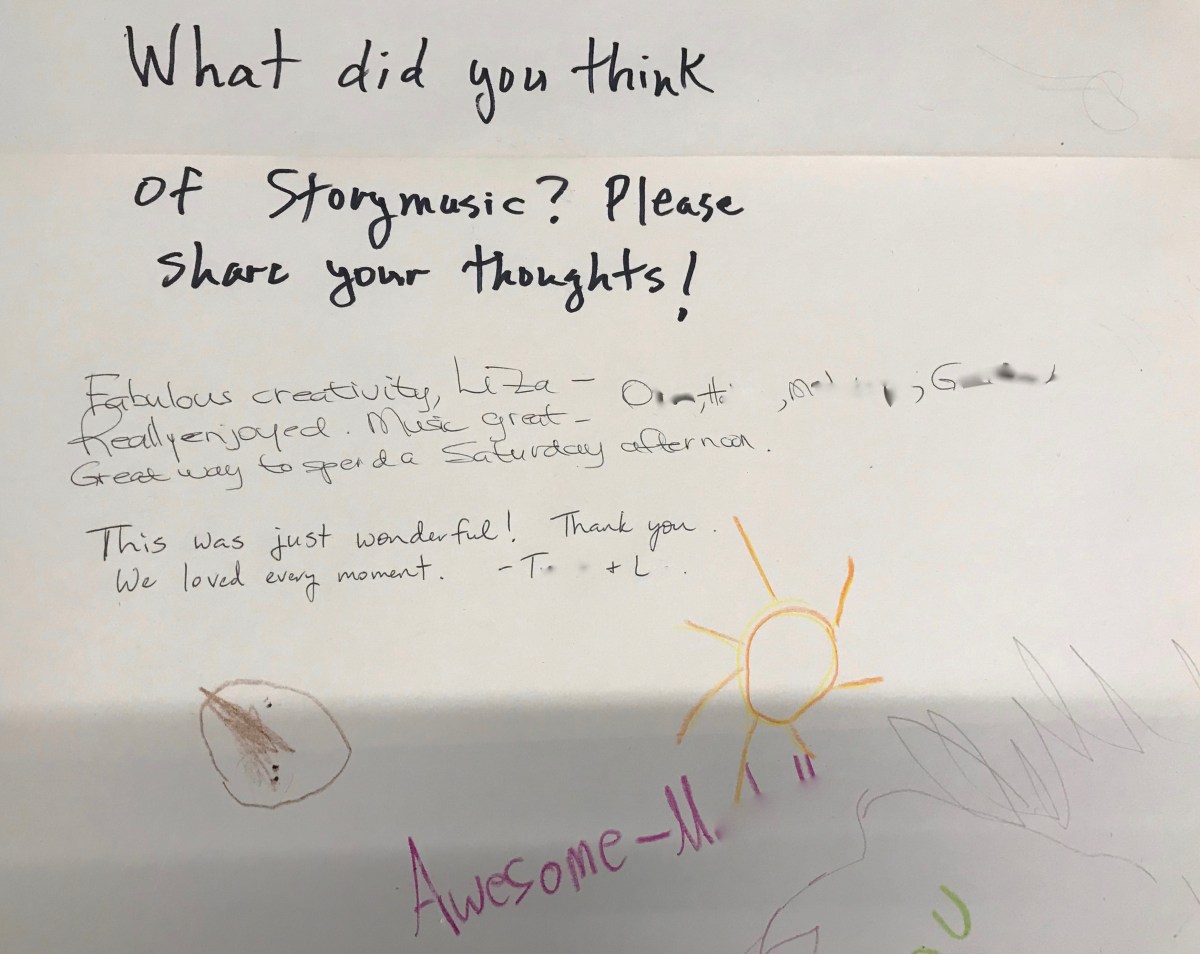 What did you think
of Storymusic? Please
share your thoughts!
Fabulous creativity, Liza -
Really enjoyed. Music great -
Great way to spend a Saturday afternoon.
This was just wonderful! Thank you.
We loved every moment. - T + L
Awesome - M.